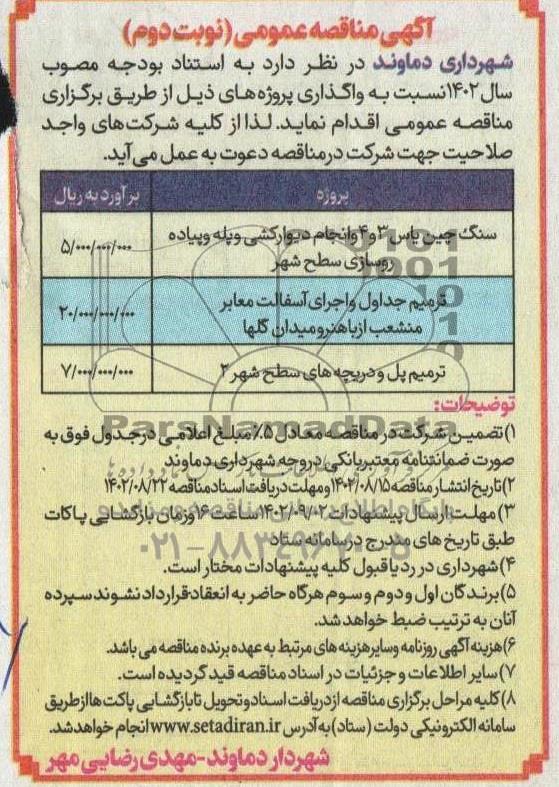 آگهی مناقصه عمومی (نوبت دوم)
شهرداری دماوند در نظر دارد به استناد بودجه مصوب
سال ۱۴۰۲ نسبت به واگذاری پروژه‌های ذیل از طریق برگزاری
مناقصه عمومی اقدام نماید. لذا از کلیه شرکت‌های واجد
صلاحیت جهت شرکت در مناقصه دعوت به عمل می‌آید.
پروژه برآورد به ریال
سنگ چین یاس ۳ و ۴ و انجام دیوارکشی و پله و پیاده
روسازی سطح شهر ۵/۰۰۰/۰۰۰/۰۰۰
ترمیم جداول و اجرای آسفالت معابر
منشعب از باهنر و میدان گلها ۲۰/۰۰۰/۰۰۰/۰۰۰
ترمیم پل و دریچه های سطح شهر ۲ ۷/۰۰۰/۰۰۰/۰۰۰
توضیحات:
ParsNamadData
۱) تضمین شرکت در مناقصه معادل ۵٪ مبلغ اعلامی در جدول فوق به
صورت ضمانتنامه معتبر بانکی در وجه شهرداری دماوند
۲) تاریخ انتشار مناقصه ۱۴۰۲/۰۸/۱۵ و مهلت دریافت اسناد مناقصه ۱۴۰۲/۰۸/۲۲
۳) مهلت ارسال پیشنهادات ۱۴۰۲/۰۹/۰۲ ساعت ۱۶ و زمان بازگشایی پاکات
طبق تاریخ های مندرج در سامانه ستاد
۰۲۱-۸۸۳۴۹۶۷۰-۵
۴) شهرداری در رد یا قبول کلیه پیشنهادات مختار است.
۵) برندگان اول و دوم و سوم هرگاه حاضر به انعقاد قرارداد نشوند سپرده
آنان به ترتیب ضبط خواهد شد.
۶) هزینه آگهی روزنامه و سایر هزینه های مرتبط به عهده برنده مناقصه می باشد.
۷) سایر اطلاعات و جزئیات در اسناد مناقصه قید گردیده است.
۸) کلیه مراحل برگزاری مناقصه از دریافت اسناد و تحویل تا بازگشایی پاکت ها از طریق
سامانه الکترونیکی دولت (ستاد) به آدرس www.setadiran.ir انجام خواهد شد.
شهردار دماوند-مهدی رضایی مهر